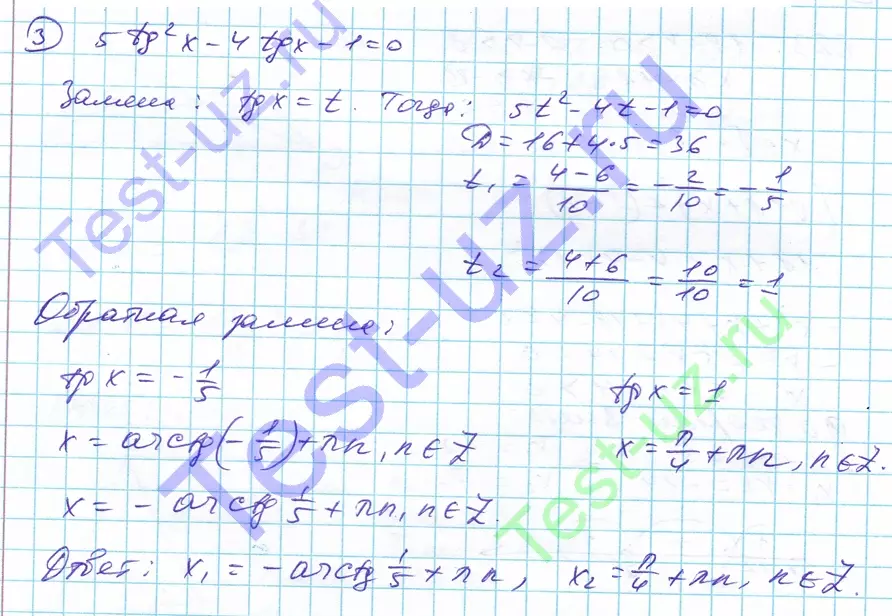 3 5 tg²x - 4 tgx - 1 = 0
Замена: tgx = t. Тогда: 5t² - 4t - 1 = 0
D = 16 + 4·5 = 36
t₁ = (4-6)/10 = -2/10 = -1/5
t₂ = (4+6)/10 = 10/10 = 1
Обратная замена:
tg x = -1/5
tg x = 1
x = arctg(-1/5) + πn, n ∈ Z
x = π/4 + πn, n ∈ Z.
x = - arctg 1/5 + πn, n ∈ Z.
Ответ: x₁ = - arctg 1/5 + πn, x₂ = π/4 + πn, n ∈ Z.
Test-uz.ru
Test-uz.ru
Test-uz.ru